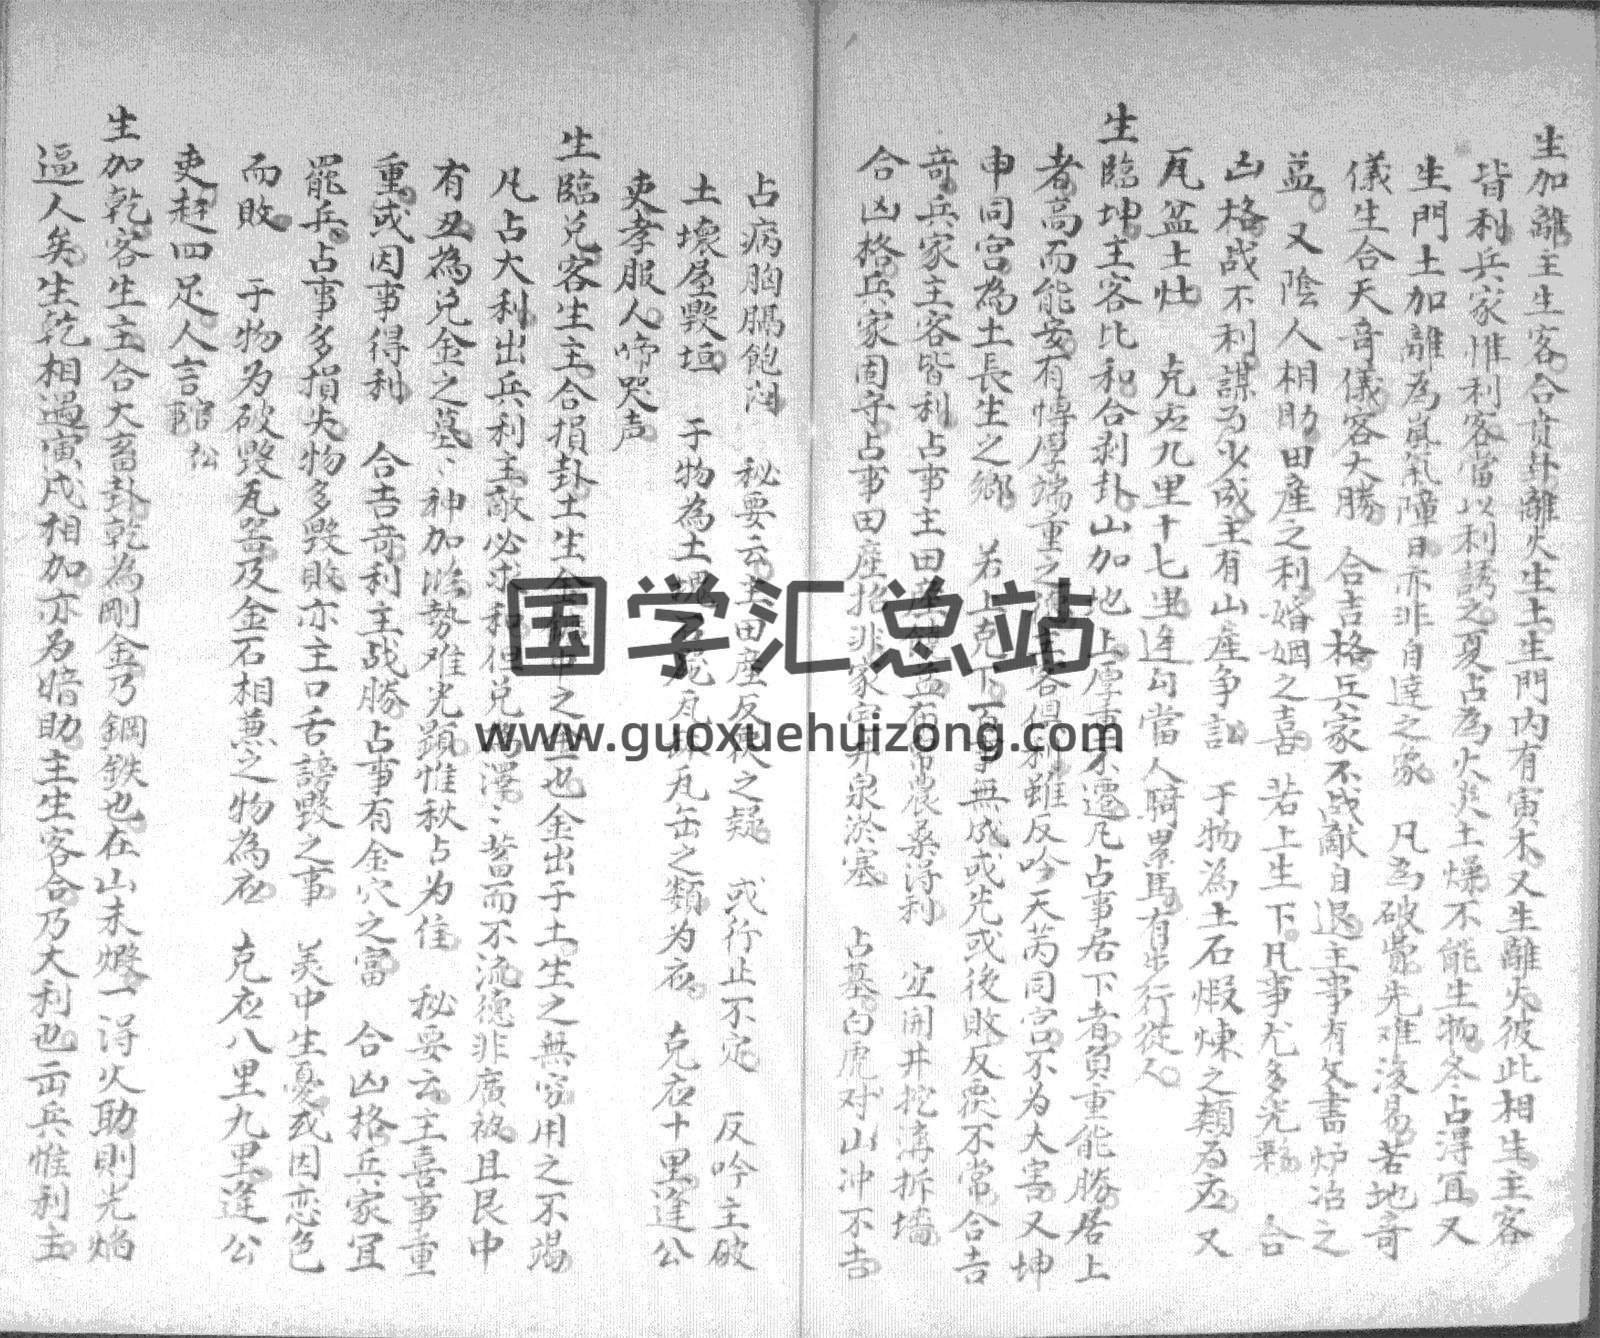 生加離主生客合賁卦離火生土生門内有寅木又生離火彼此相生主客
皆利兵家惟利客當以利誘之夏占為火炎土燥不能生物冬占得宜又
生門土加離為嵐氣障日亦非自達之家 凡為破費先难後易若地奇
儀生合天奇儀客大勝 合吉格兵家不战敵自退主事有文書炉冶之
益又陰人相助田産之利婚姻之喜 若上生下凡事尤多光彩 合
凶格战不利謀为少成主有山産争訟 于物為土石煆煉之類为应又
瓦盆土灶 克应九里十七里逢勾當人騎黑馬有步行從人
生臨坤主客比和合剥卦山加地上厚重不遷凡占事居下者負重能勝居上
者高而能安有慱厚端重之 主客俱利雖反吟天芮同宫不为大害又坤
申同宫為土長生之鄉 若上克下百事無成或先或後敗反覆不常合吉
奇兵家主客皆利占事主田産 益有常農桑得利 宜開井挖溝拆墙
合凶格兵家固守占事田産招非家宅井泉淤塞 占墓白虎对山冲不吉
占病胸膈飽悶 秘要云主田産反復之疑 或行止不定 反吟主破
土壞屋毁垣 于物為土塊 瓦 瓦缶之類为应 克应十里逢公
吏孝服人啼哭声
生臨兑客生主合損卦土生金 中之 也金出于土生之無穷用之不竭
凡占大利出兵利主敵必求和但兑為澤〻蓄而不流德非廣被且艮中
有丑為兑金之墓〻神加临势难光顕惟秋占为佳 秘要云主喜事重
重或因事得利 合吉奇利主战勝占事有金穴之富 合凶格兵家宜
罷兵占事多損失物多毁敗亦主口舌謗毁之事 美中生憂或因恋色
而敗 于物为破毁瓦器及金石相兼之物為应 克应八里九里逢公
吏赶四足人言官訟事
生加乾客生主合大畜卦乾為剛金乃鋼鉄也在山未煅一得火助則光焰
逼人矣生乾相遇寅戌相加亦为暗助主生客合乃大利也出兵惟利主
国学汇总站
www.guoxuehuizong.com